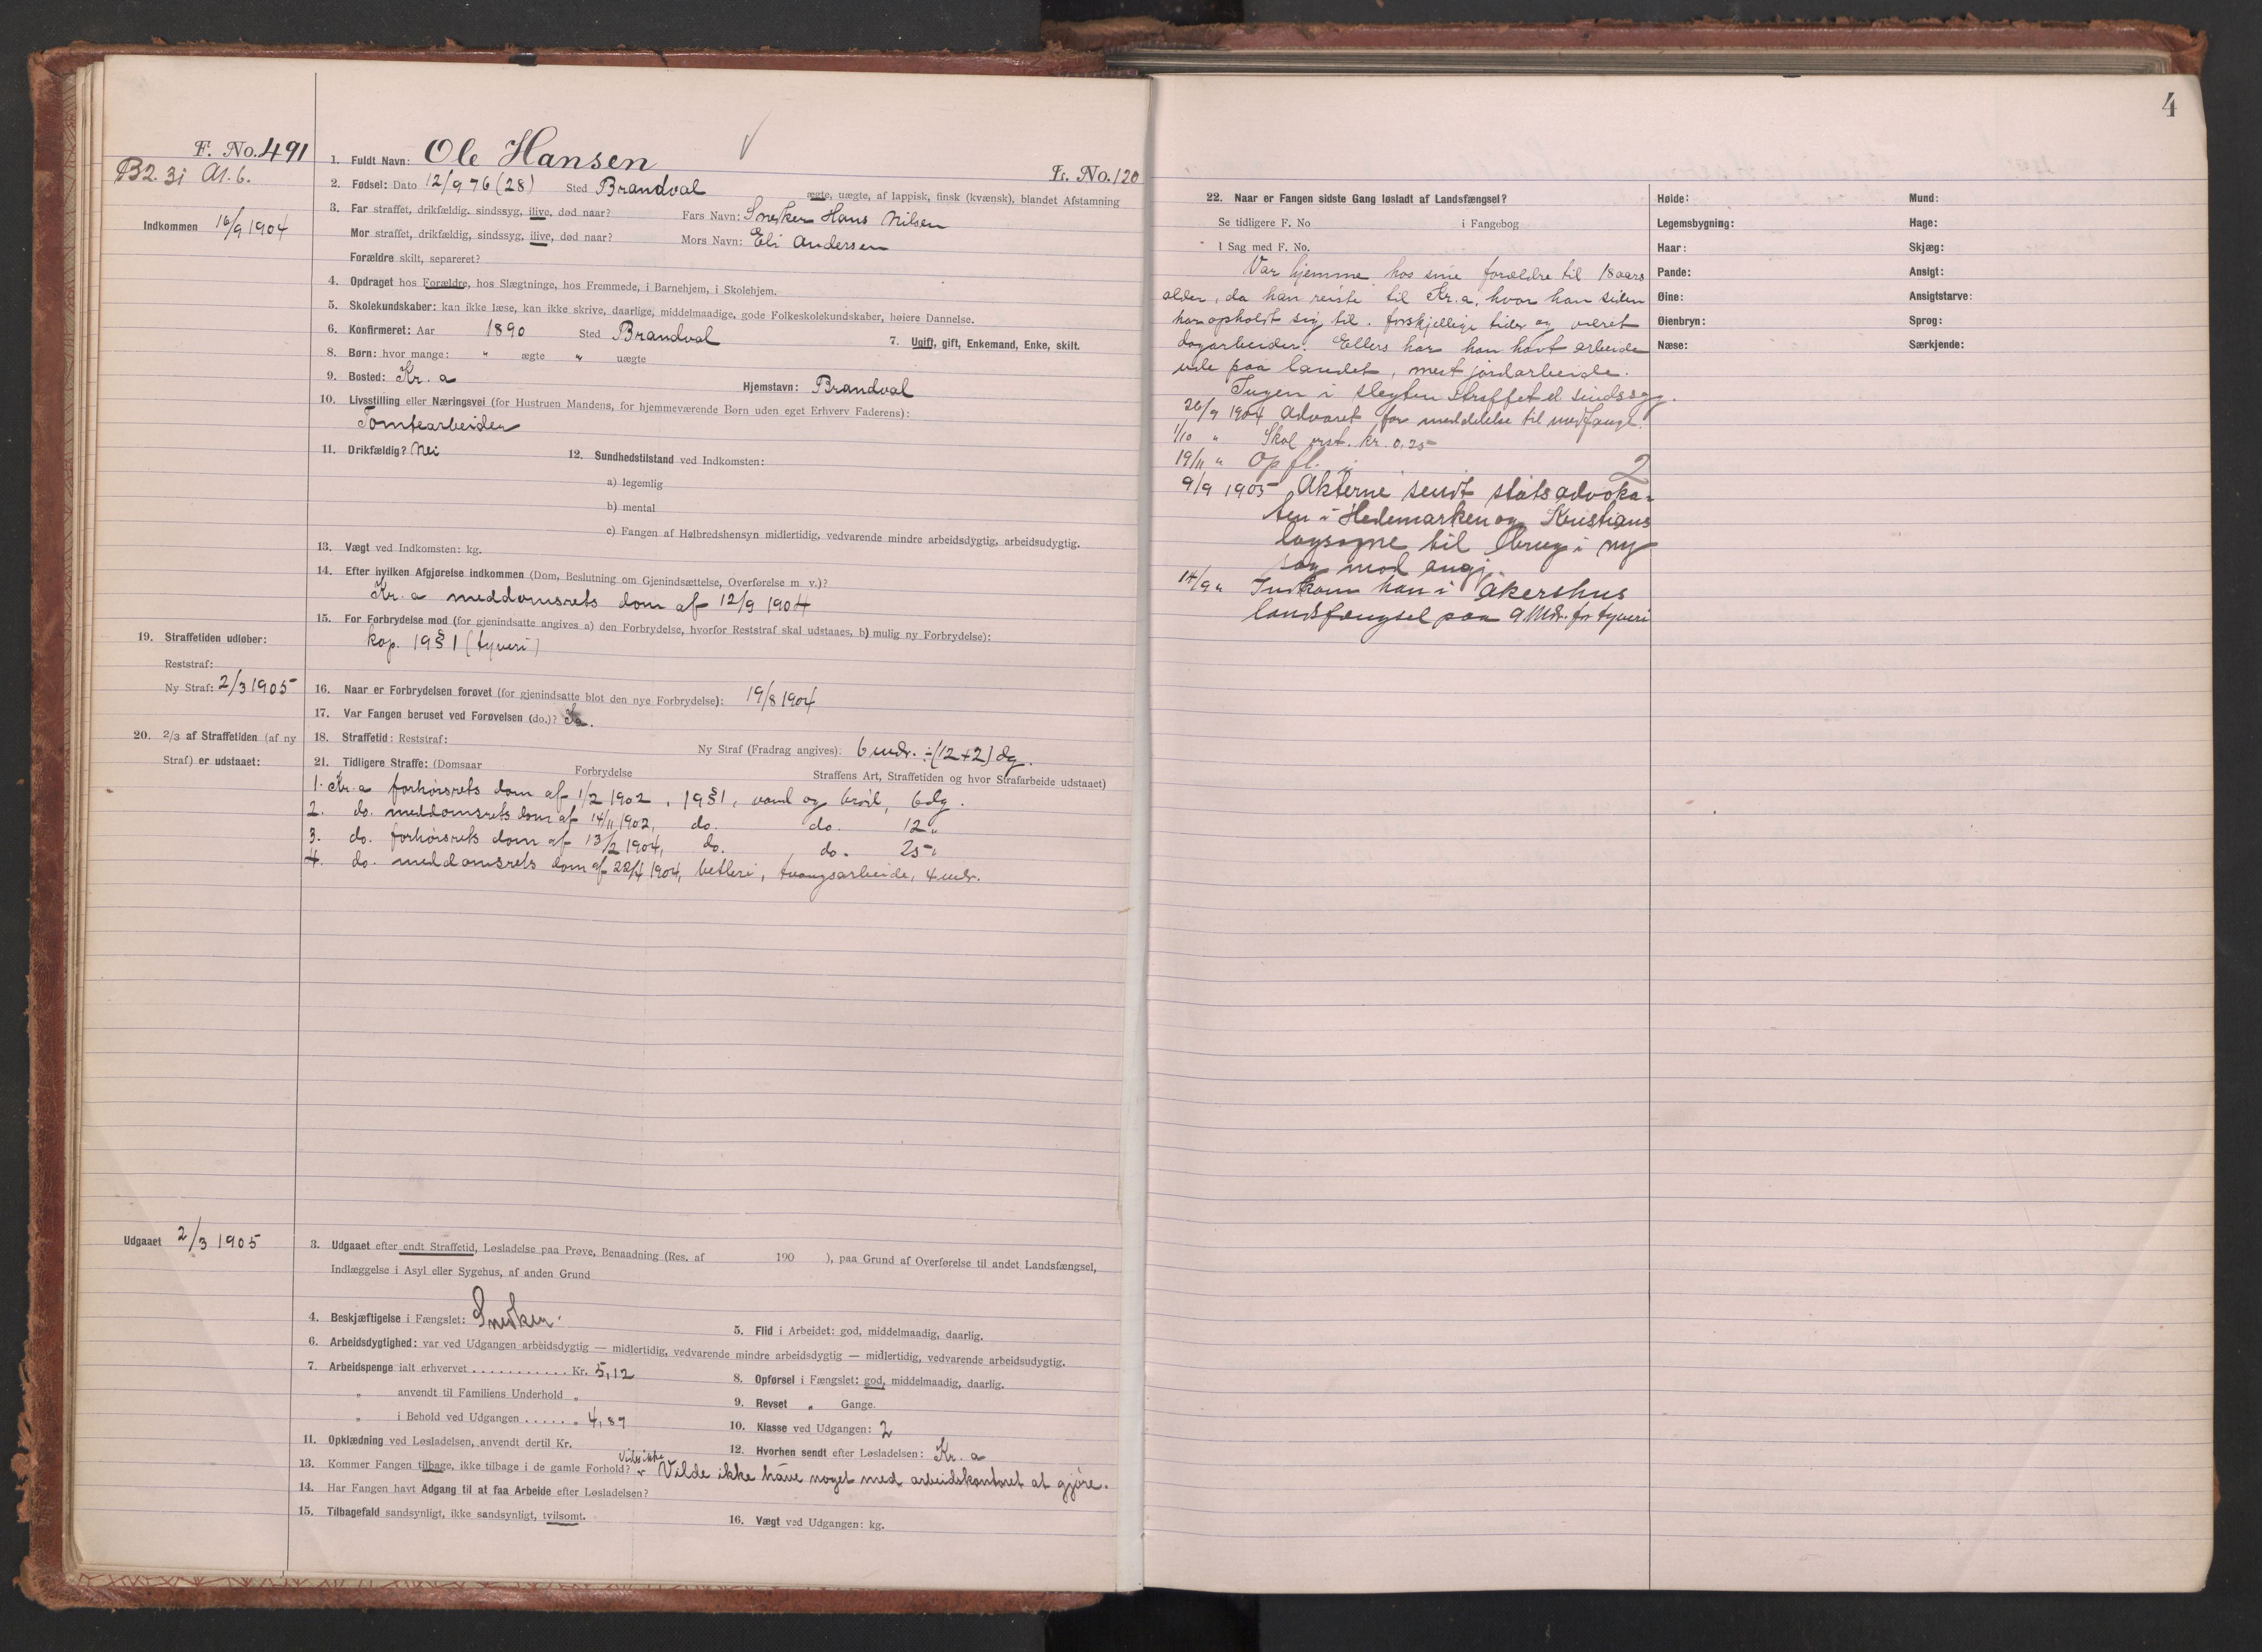 F. No. 491
B2. 3i A1. 6.
Indkommen 16/9 1904
1. Fuldt Navn: Ole Hansen
Fr. No. 120
2. Fødsel: Dato 12/9 76 (28) Sted Brandval ægte, uægte, af lappisk, finsk (kvænsk), blandet Afstamning
3. Far straffet, drikfældig, sindssyg, ilive, død naar? Fars Navn: Snekker Hans Nilsen
Mor straffet, drikfældig, sindssyg, ilive, død naar? Mors Navn: Eli Andersen
Forældre skilt, separeret?
4. Opdraget hos Forældre, hos Slægtninge, hos Fremmede, i Barnehjem, i Skolehjem.
5. Skolekundskaber: kan ikke læse, kan ikke skrive, daarlige, middelmaadige, gode Folkeskolekundskaber, høiere Dannelse.
6. Konfirmeret: Aar 1890 Sted Brandval 7. Ugift, gift, Enkemand, Enke, skilt.
8. Børn: hvor mange: " ægte " uægte
9. Bosted: Kr.a Hjemstavn: Brandval
10. Livsstilling eller Næringsvei (for Hustruen Mandens, for hjemmeværende Børn uden eget Erhverv Faderens):
Tomtearbeider
11. Drikfældig? Nei 12. Sundhedstilstand ved Indkomsten:
a) legemlig
b) mental
c) Fangen af Helbredshensyn midlertidig, vedvarende mindre arbeidsdygtig, arbeidsudygtig.
13. Vægt ved Indkomsten: kg.
14. Efter hvilken Afgjørelse indkommen (Dom, Beslutning om Gjenindsættelse, Overførelse m. v.)?
Kr.a meddomsrets dom af 12/9 1904
15. For Forbrydelse mod (for gjenindsatte angives a) den Forbrydelse, hvorfor Reststraf skal udstaaes, b) mulig ny Forbrydelse):
kap. 19 § 1 (tyveri)
19. Straffetiden udløber:
Reststraf:
Ny Straf: 2/3 1905
16. Naar er Forbrydelsen forøvet (for gjenindsatte blot den nye Forbrydelse): 19/8 1904
17. Var Fangen beruset ved Forøvelsen (do.)? Ja.
20. 2/3 af Straffetiden (af ny
Straf) er udstaaet:
18. Straffetid: Reststraf: Ny Straf (Fradrag angives): 6 mdr. ÷ (12+2) dg.
21. Tidligere Straffe: (Domsaar Forbrydelse Straffens Art, Straffetiden og hvor Strafarbeide udstaaet)
1. Kr.a forhørsrets dom af 1/2 1902, 19 § 1, vand og brød, 6 dg.
2. do. meddomsrets dom af 14/11 1902, do. do. 12 "
3. do. forhørsrets dom af 13/2 1904, do. do. 25 "
4. do. meddomsrets dom af 22/4 1904, betleri, tvangsarbeide, 4 mdr.
Udgaaet 2/3 1905
3. Udgaaet efter endt Straffetid, Løsladelse paa Prøve, Benaadning (Res. af 190 ), paa Grund af Overførelse til andet Landsfængsel,
Indlæggelse i Asyl eller Sygehus, af anden Grund
4. Beskjæftigelse i Fængslet: Snekker. 5. Flid i Arbeidet: god, middelmaadig, daarlig.
6. Arbeidsdygtighed: var ved Udgangen arbeidsdygtig — midlertidig, vedvarende mindre arbeidsdygtig — midlertidig, vedvarende arbeidsudygtig.
7. Arbeidspenge ialt erhvervet . . . . . . . . . . . Kr. 5,12 8. Opførsel i Fængslet: god, middelmaadig, daarlig.
" anvendt til Familiens Underhold " 9. Revset " Gange.
" i Behold ved Udgangen . . . . . " 4,89 10. Klasse ved Udgangen: 2
11. Opklædning ved Løsladelsen, anvendt dertil Kr. 12. Hvorhen sendt efter Løsladelsen: Kr.a
13. Kommer Fangen tilbage, ikke tilbage i de gamle Forhold? Vides ikke
14. Har Fangen havt Adgang til at faa Arbeide efter Løsladelsen? " Vilde ikke have noget med arbeidskontoret at gjøre.
15. Tilbagefald sandsynligt, ikke sandsynligt, tvilsomt. 16. Vægt ved Udgangen: kg.
4
22. Naar er Fangen sidste Gang løsladt af Landsfængsel?
Se tidligere F. No i Fangebog
I Sag med F. No.
Var hjemme hos sine forældre til 18 aars
alder, da han reiste til Kr.a, hvor han siden
har opholdt sig til forskjellige tider og været
dagarbeider. Ellers har han havt arbeide
ude paa landet, mest jordarbeide.
Ingen i slegten straffet el sindssyg.
26/9 1904 Advaret for meddelelse til medfange.
1/10 " Skal erst. kr. 0.25
19/11 " Opfl. i 2
9/9 1905 Akterne sendt statsadvoka-
ten i Hedemarken og Kristians
lagsogne til brug i ny
sag mod angj.
14/9 " Indkom han i Akershus
landsfængsel paa 9 Mdr. for tyveri
Høide: Mund:
Legemsbygning: Hage:
Haar: Skjæg:
Pande: Ansigt:
Øine: Ansigtstarve:
Øienbryn: Sprog:
Næse: Særkjende: